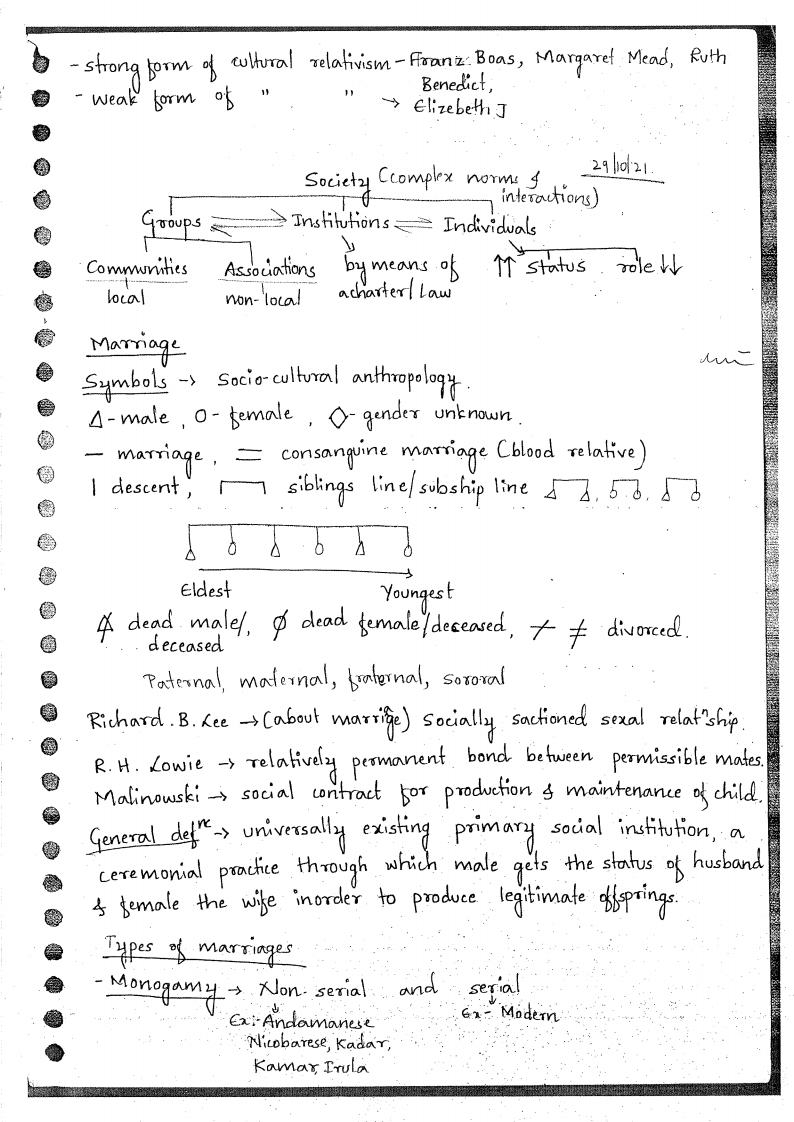 - strong form of cultural relativism - Franz Boas, Margaret Mead, Ruth
Benedict,
- weak form of " " → Elizebeth J
29/10/21
Society (complex norms &
interactions)
Groups ⇌ Institutions ⇌ Individuals
Communities Associations by means of ↑↑ status role ↓↓
local non-local acharter/Law
Marriage
Symbols → Socio-cultural anthropology.
Δ - male, O - female, ◇ - gender unknown.
— marriage, = consanguine marriage (blood relative)
| descent, siblings line/subship line
Eldest Youngest
dead male/, ϕ dead female/deceased, ≠ divorced.
deceased
Paternal, maternal, fraternal, sororal
Richard.B.Lee → (about marrige) Socially sactioned sexal relatⁿship.
R.H. Lowie → relatively permanent bond between permissible mates.
Malinowski → social contract for production & maintenance of child.
General defⁿ → universally existing primary social institution, a
ceremonial practice through which male gets the status of husband
& female the wife inorder to produce legitimate offsprings.
Types of marriages
- Monogamy → Non-serial and serial
Ex:- Andamanese Ex- Modern
Nicobarese, Kadar,
Kamar, Irula